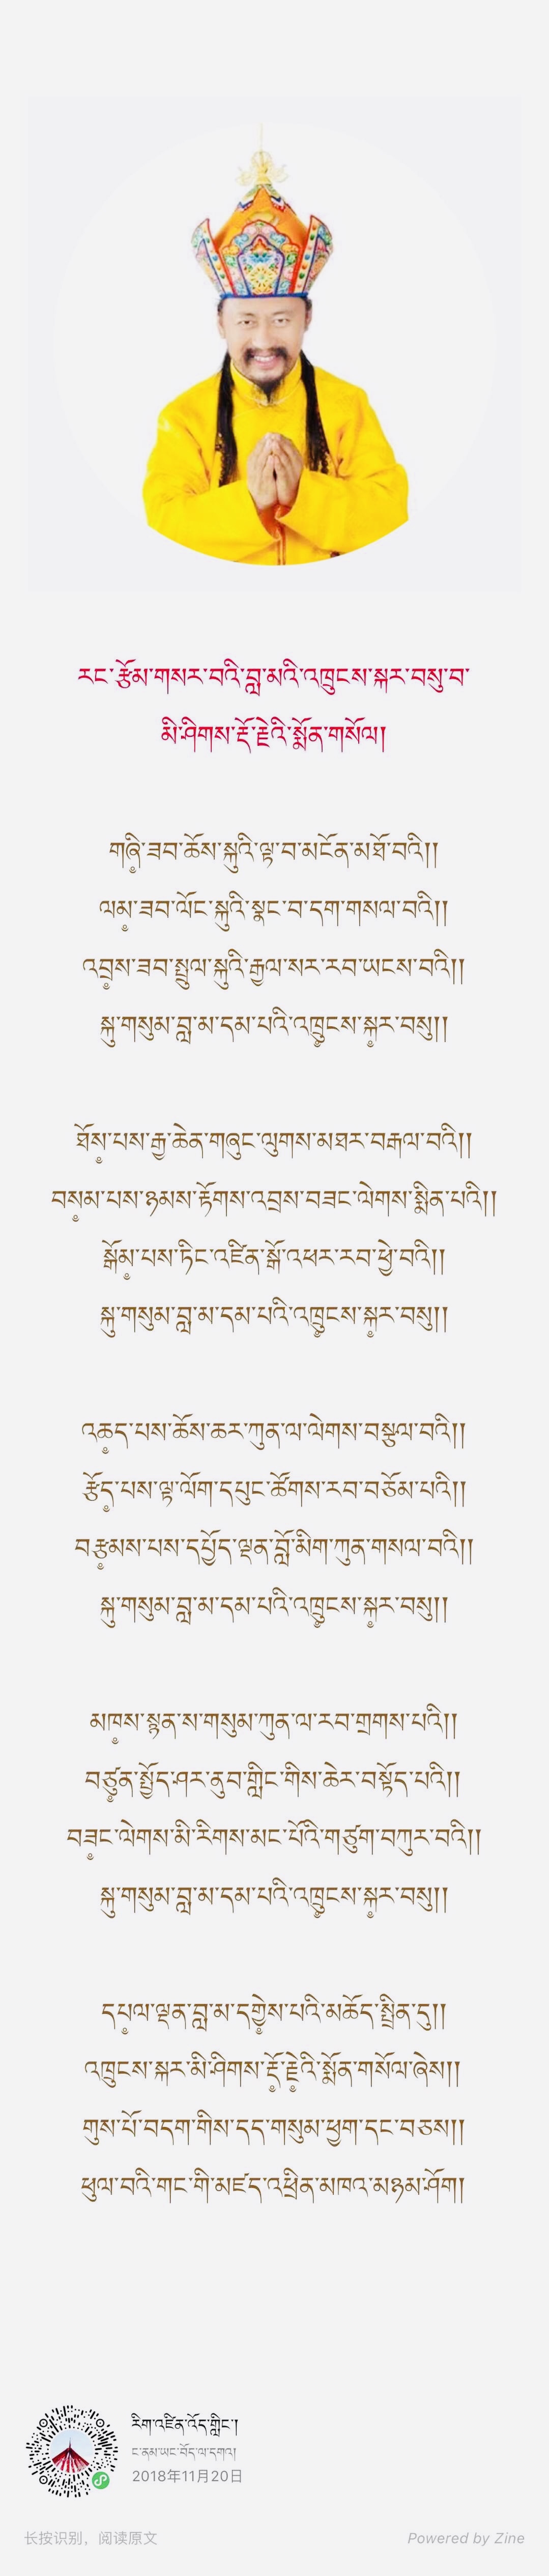 རང་རྩོམ་གསར་བའི་བླ་མའི་འཁྲུངས་སྐར་བསུ་བ་
མི་ཤིགས་རྡོ་རྗེའི་སྨོན་གསོལ།
གཞི༷་ཟབ་ཆོས་སྐུའི་ལྟ་བ་མངོན་མཐོ་བའི།།
ལམ༷་ཟབ་ལོང་སྐུའི་སྣང་བ་དག་གསལ་བའི།།
འབྲ༷ས་ཟབ་སྤྲུལ་སྐུའི་རྒྱལ་སར་རབ་ཡངས་བའི།།
སྐུ་གསུམ་བླ་མ་དམ་པའི་འཁྲུ༷ངས་སྐ༷ར་བསུ།།
ཐོས༷་པས་རྒྱ་ཆེན་གཞུང་ལུགས་མཐར་བརྒལ་བའི།།
བས༷མ་པས་ཉམས་རྟོགས་འབྲས་བཟང་ལེགས་སྨིན་པའི།།
སྒོམ༷་པས་ཏིང་འཛིན་སྒོ་འཕར་རབ་ཕྱེ་བའི།།
སྐུ་གསུམ་བླ་མ་དམ་པའི་འཁྲུ༷ངས་སྐ༷ར་བསུ།།
འཆ༷ད་པས་ཆོས་ཆར་ཀུན་ལ་ལེགས་བསྩལ་བའི།།
རྩོད༷་པས་ལྟ་ལོག་དཔུང་ཚོགས་རབ་བཅོམ་པའི།།
བརྩ༷མས་པས་དཔྱོད་ལྡན་བློ་མིག་ཀུན་གསལ་བའི།།
སྐུ་གསུམ་བླ་མ་དམ་པའི་འཁྲུ༷ངས་སྐ༷ར་བསུ།།
མཁ༷ས་སྙན་ས་གསུམ་ཀུན་ལ་རབ་གྲགས་པའི།།
བཙུ༷ན་སྤྱོད་ཤར་ནུབ་གླིང་གིས་ཆེར་བསྟོད་པའི།།
བཟ༷ང་ལེགས་མི་རིགས་མང་པོའི་གཙུག་བཀུར་བའི།།
སྐུ་གསུམ་བླ་མ་དམ་པའི་འཁྲུ༷ངས་སྐ༷ར་བསུ།།
དཔ༷ལ་ལྡན་བླ་མ་དགྱེ༷ས་པའི་མཆོད་སྤྲིན་དུ།།
འཁྲུངས་སྐར་མི་ཤིགས་རྡོ༷་རྗེ༷འི་སྨོན་གསོལ་ཞེས།།
གུས་པོ་བདག་གིས་དད་གསུམ་ཕྱག་དང་བཅས།།
ཕུལ་བའི་གང་གི་མཛད་འཕྲིན་མཁའ་མཉམ་ཤོག།
རིག་འཛིན་འོད་གླིང་།
ང་ནམ་ཡང་བོད་ལ་དགའ།
2018年11月20日
长按识别，阅读原文
Powered by Zine